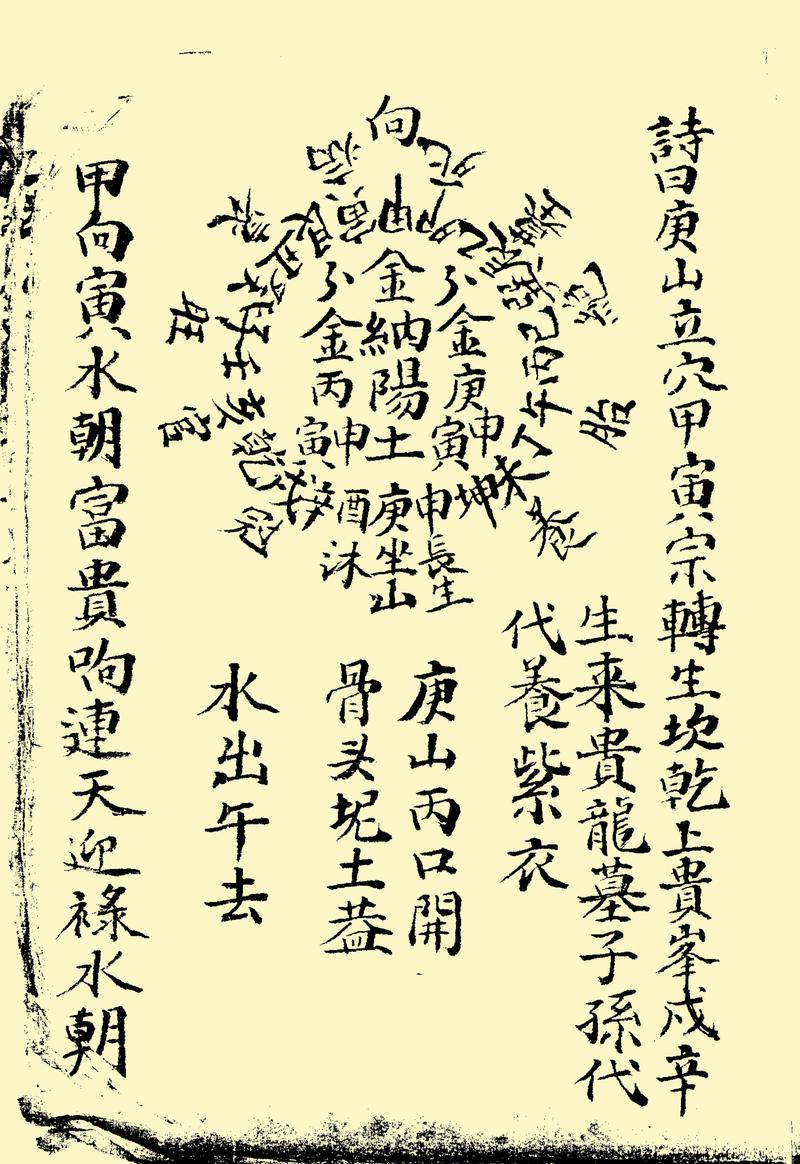 詩曰庚山立穴甲寅宗轉生坎乾上貴峯戍辛
生来貴龍墓子孫代
代養紫衣
向
甲
分金庚寅
金納陽土
分金丙寅
申
申
庚坐山
申長生
酒沐
坤
未
丁
午
丙
巳
艮
寅
壬
亥
乾
官
旺
养
庚山丙口開
骨头坭土葢
水出午去
甲向寅水朝富貴响連天迎祿水朝